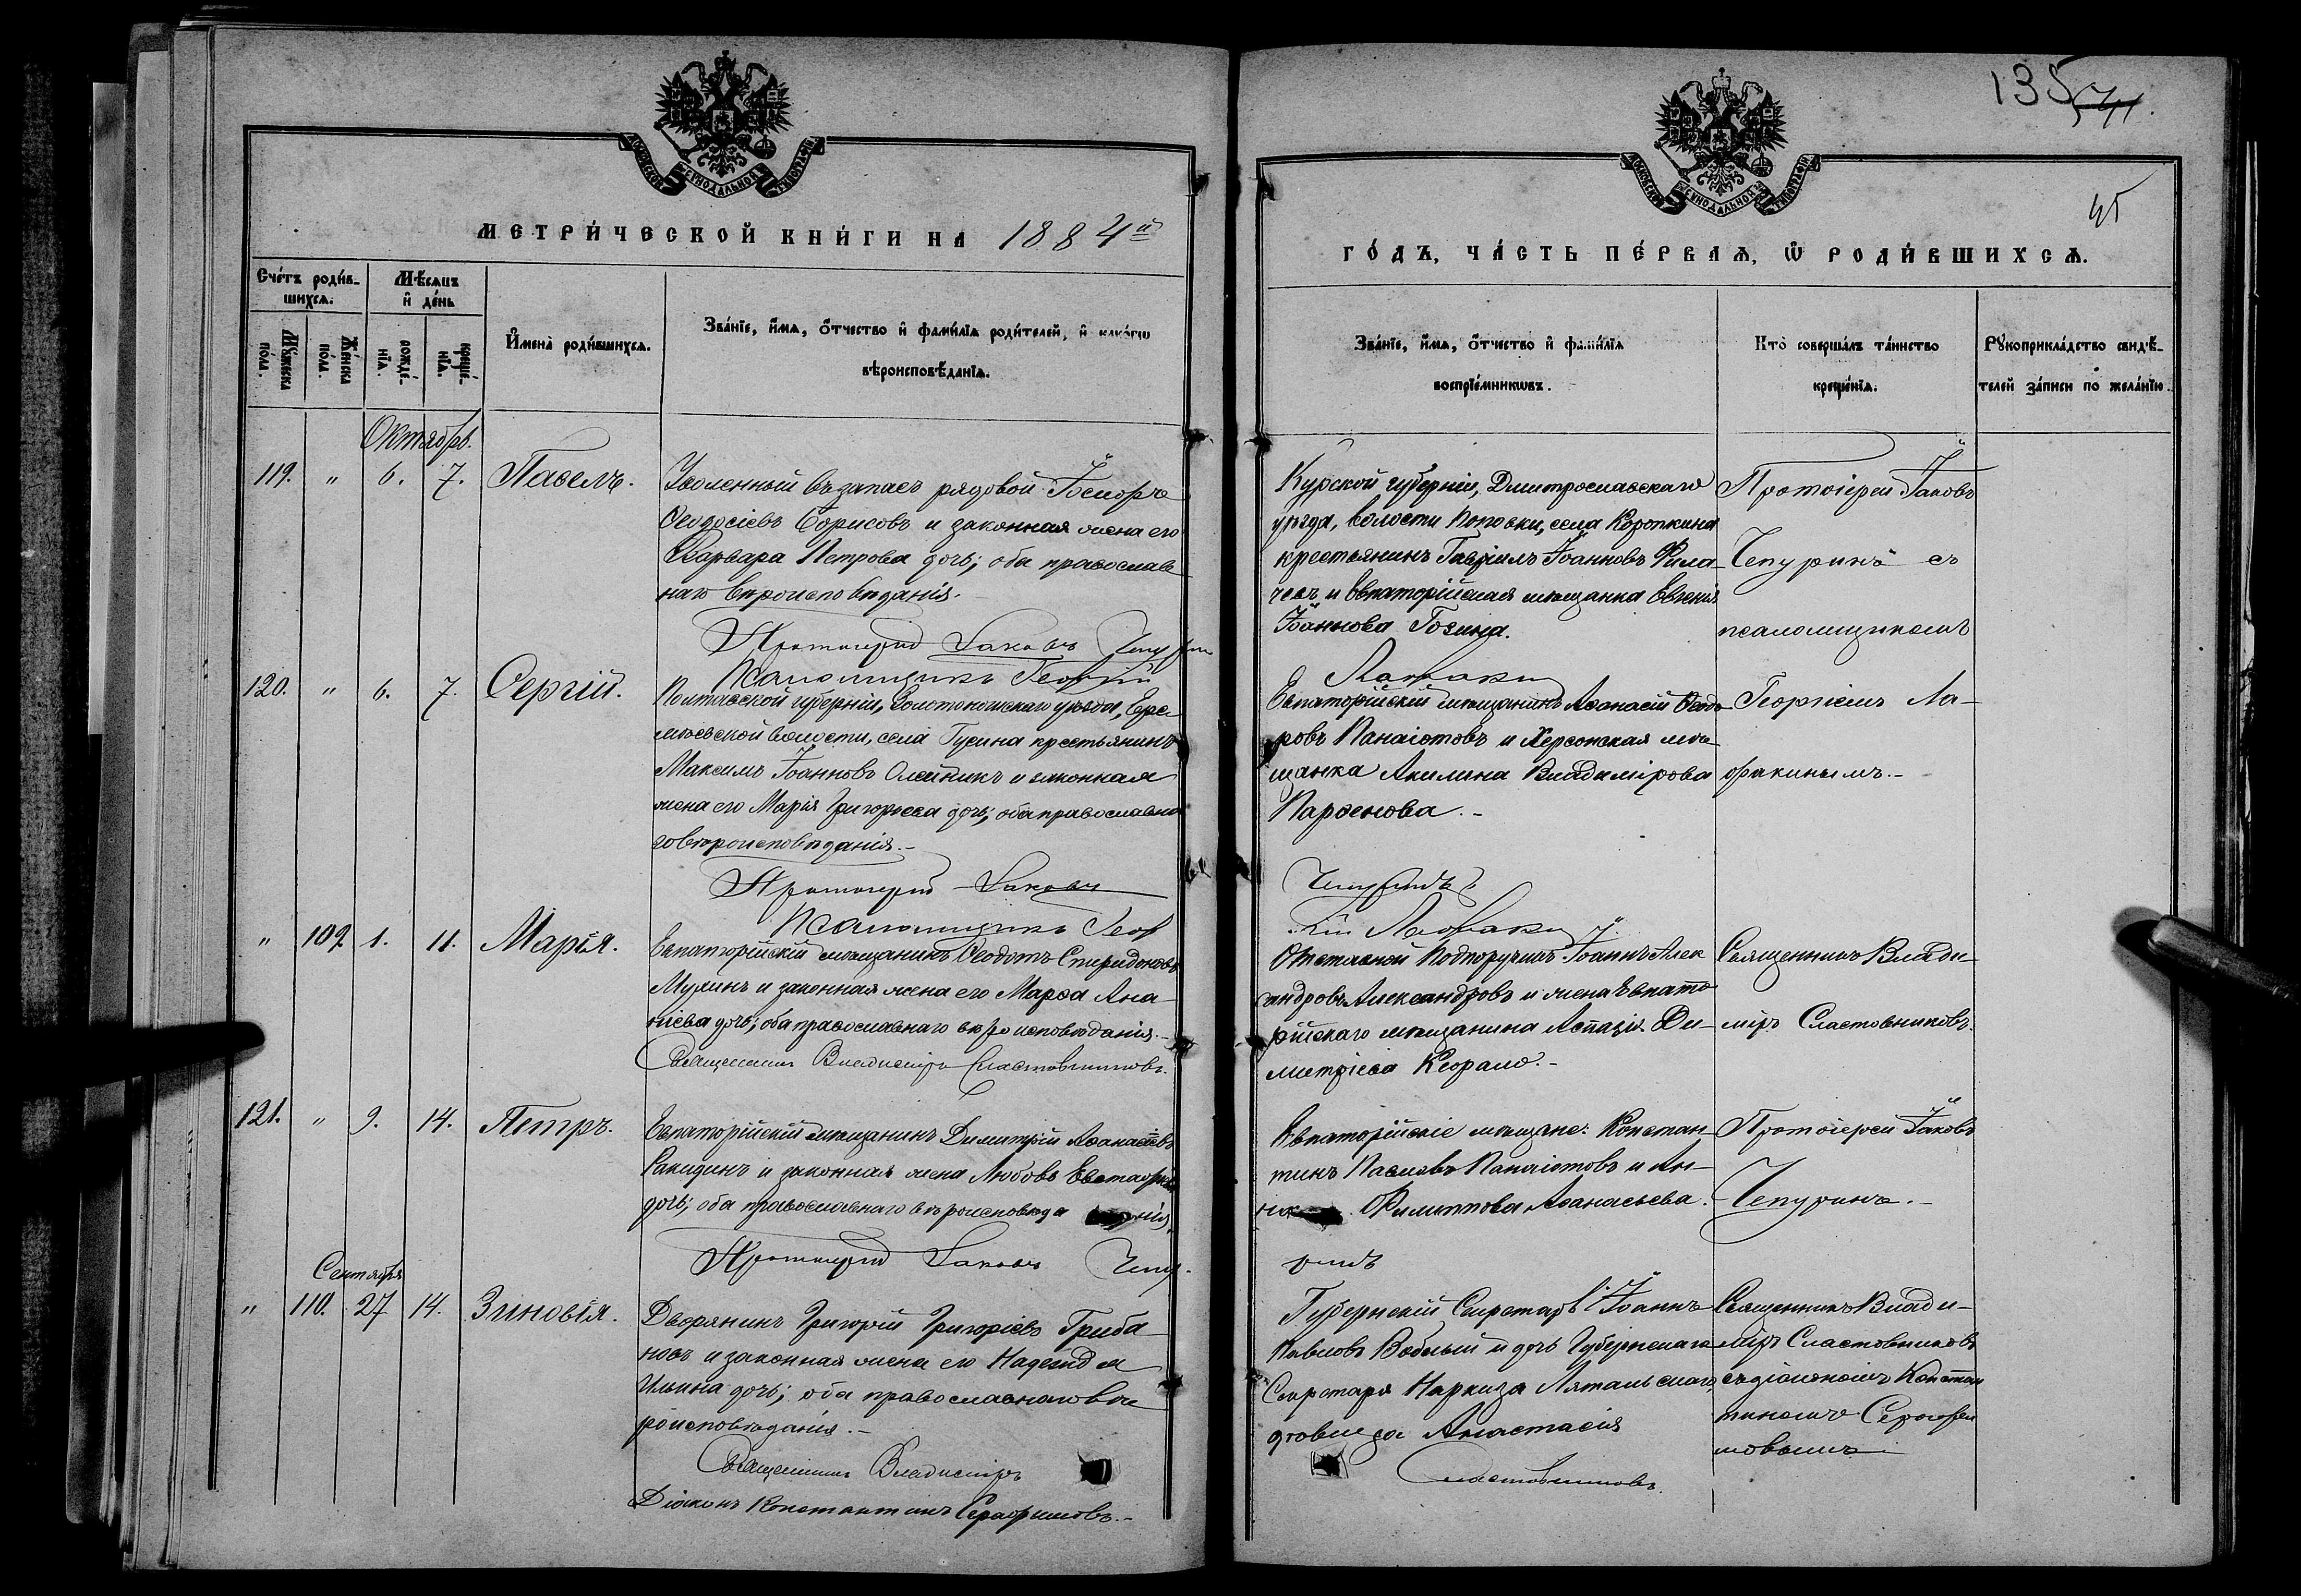 135
45
МОСКОВСКОЙ СѴНОДАЛЬНОЙ ТИПОГРАФІИ
МОСКОВСКОЙ СѴНОДАЛЬНОЙ ТИПОГРАФІИ
МЕТРИ́ЧЕСКОЙ КНИ́ГИ НА 1884й
ГО́ДЪ, ЧА́СТЬ ПЕ́РВАѦ, Ѡ҆ РОДИ́ВШИХСѦ.
Сче́тъ роди́в-
шихсѧ.
Мѣ́сѧцъ
и҆ де́нь
Мꙋ́жеска
по́ла.
Же́нска
по́ла.
рожде́-
нїѧ.
креще́-
нїѧ.
И҆мена̀ роди́вшихсѧ.
Зва́нїе, и҆́мѧ, ѻ҆́тчество и҆ фами́лїѧ роди́телей, и҆ како́гѡ
вѣроисповѣ́данїѧ.
Зва́нїе, и҆́мѧ, ѻ҆́тчество и҆ фами́лїѧ
воспрїе́мникѡвъ.
Кто̀ соверша́лъ та́инство
креще́нїѧ.
Рꙋкоприкла́дство свидѣ́-
телей за́писи по жела́нїю.
Октябрь.
119. " 6. 7. Павелъ.
Уволенный въ запасъ рядовой Іосифъ
Ѳеодосіевъ Борисовъ и законная жена его
Варвара Петрова дочь; оба православ
наго вѣроисповѣданія.
Протоіерей Іаковъ Чепурин
Псаломщикъ Георгій
Курской губерніи, Дмитрославскаго
уѣзда, волости Поповки, села Коропкина
крестьянинъ Гавріилъ Іоанновъ Фила-
чевъ и Евпаторійская мѣщанка Евгенія
Іоаннова Гозина.
Лафаки
Протоіерей Іаковъ
Чепуринъ съ
псаломщикомъ
Георгіемъ Ла-
факинымъ.-
120. " 6. 7. Сергій.
Полтавской губерніи, Золотоношскаго уѣзда, Ере
мѣевской волости, села Гусина крестьянинъ
Максимъ Іоанновъ Олейникъ и законная
жена его Марія Григорьева дочь; оба православна
го вѣроисповѣданія.-
Протоіерей Іаковъ
Псаломщикъ Геор
Евпаторійскій мѣщанинъ Аѳанасій Ѳеодо-
ровъ Панаіотовъ и Херсонская мѣ
щанка Акилина Владимірова
Парѳенова.-
Чепуринъ
гій Лафаки
" 109. 1. 11. Марія.
Евпаторійскій мѣщанинъ Ѳеодотъ Спиридоновъ
Мулинъ и законная жена его Марѳа Ана-
ніева дочь; оба православнаго вѣроисповѣданія.-
Священникъ Владиміръ Сластовниковъ.
Отставной Подпоручикъ Іоаннъ Алек
сандровъ Александровъ и жена Евпато
рійскаго мѣщанина Аспазія Ди-
митріева Кефало.-
Священникъ Влади-
міръ Сластовниковъ.
121. " 9. 14. Петръ.
Евпаторійскій мѣщанинъ Димитрій Аѳанасіевъ
Ракидинъ и законная жена Любовь Евстафіева
дочь; оба православнаго вѣроисповѣда нія.
Протоіерей Іаковъ Чепу-
Евпаторійскіе мѣщане: Констан-
тинъ Павловъ Панаіотовъ и Ан-
на Филиппова Аѳанасьева.
ринъ
Протоіерей Іаковъ
Чепуринъ.-
Сентября
" 110. 27 14. Зиновія.
Дворянинъ Григорій Григоріевъ Гриба-
новъ и законная жена его Надежда
Ильина дочь; оба православнаго вѣ
роисповѣданія.-
Священникъ Владиміръ
Діаконъ Константинъ Серафимовъ.-
Губернскій Секретарь Іоаннъ
Павловъ Воблый и дочь Губернскаго
Секретаря Наркиза Лятальскаго,
дѣвица Анастасія
Сластовниковъ.
Священникъ Влади-
міръ Сластовниковъ
съ діакономъ Констан
тиномъ Серафи
мовымъ